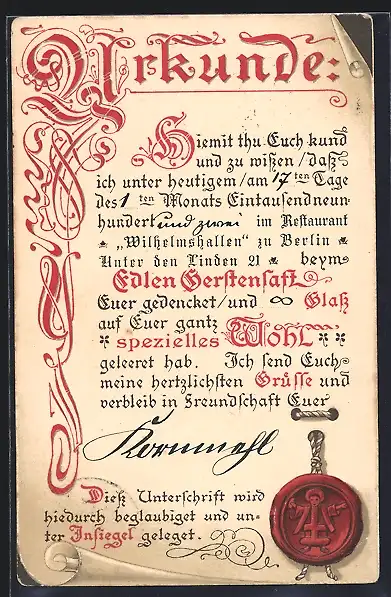 Urkunde:
Hiemit thu Euch kund
und zu wißen / daß
ich unter heutigem / am 17ten Tage
des 1ten Monats Eintausendneun-
hundert und zwei im Restaurant
„Wilhelmshallen" zu Berlin
Unter den Linden 21 beym
Edlen Gerstensaft
Euer gedencket / und ∞ Glaß
auf Euer gantz
spezielles Wohl
geleeret hab. Ich send Euch
meine hertzlichsten Grüsse und
verbleib in Freundschaft Euer
Kornmehl
Dieß Unterschrift wird
hiedurch beglaubiget und un-
ter Insiegel geleget.